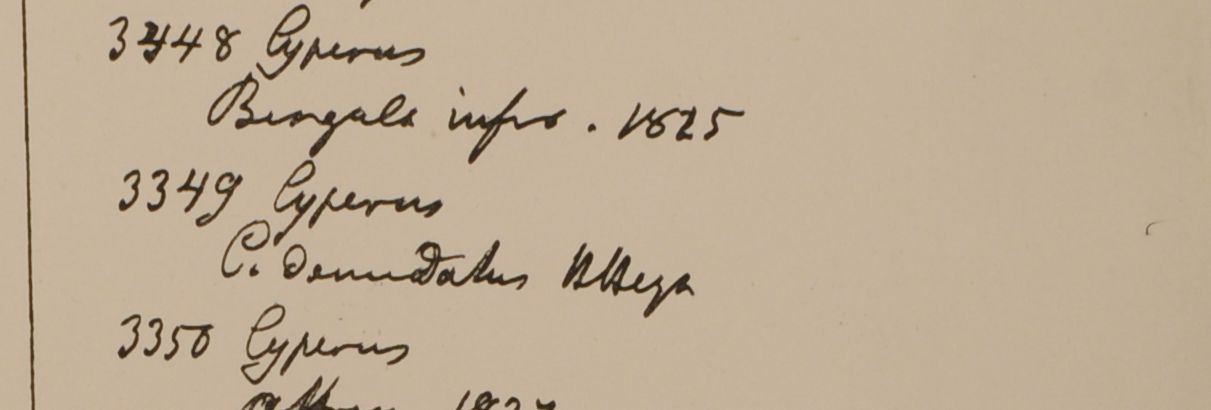 3348 Cyperus
Bengala infr. 1825
3349 Cyperus
C. denudatus
3350 Cyperus